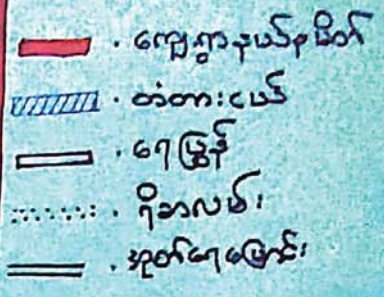 ကျေးရွာနယ်နမိတ်
တံတားငယ်
ရေပြွန်
ရိုးသလမ်း
အုတ်ရေမြောင်း